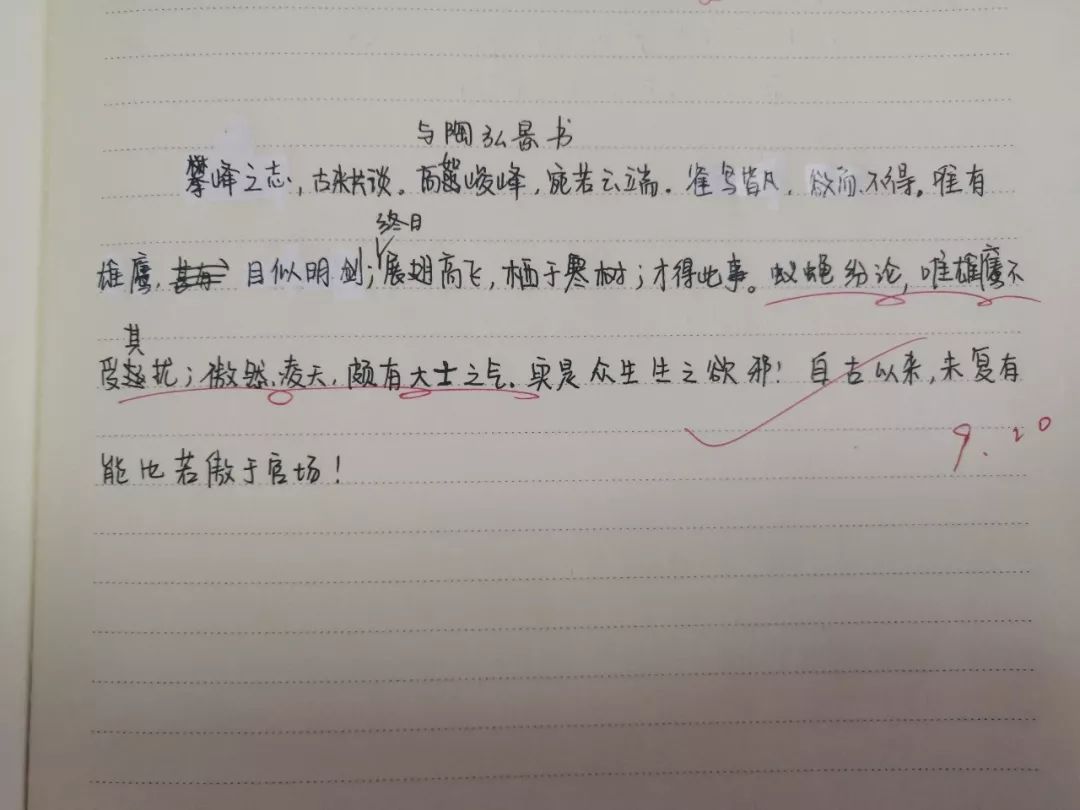 与陶弘景书
攀峰之志，古来共谈。高 峻峰，宛若云端。雀鸟皆凡，欲而不得。唯有
终日
雄鹰， 目似明剑；展翅高飞，栖于寒树；才得此事。蚁蝇纷论，唯雄鹰不
其
受 扰；傲然凌天，颇有大士之气。实是众生生之欲邪！自古以来，未复有
9.20
能比若傲于官场！